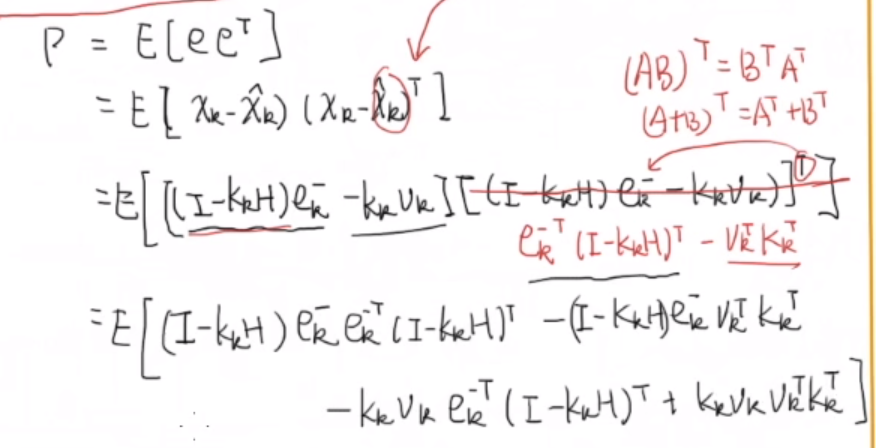 P = E[e eᵀ]
= E[ xₖ-x̂ₖ) (xₖ-x̂ₖ)ᵀ ]
(AB)ᵀ = BᵀAᵀ
(A+B)ᵀ = Aᵀ+Bᵀ
= E[[(I-kₖH)eₖ⁻ - kₖvₖ][(I-kₖH)eₖ⁻ - kₖvₖ)]ᵀ]
eₖ⁻ᵀ (I-kₖH)ᵀ - vₖᵀ kₖᵀ
= E[(I-kₖH) eₖ⁻ eₖ⁻ᵀ (I-kₖH)ᵀ - (I-kₖH)eₖ⁻ vₖᵀ kₖᵀ
- kₖ vₖ eₖ⁻ᵀ (I-kₖH)ᵀ + kₖvₖ vₖᵀkₖᵀ]